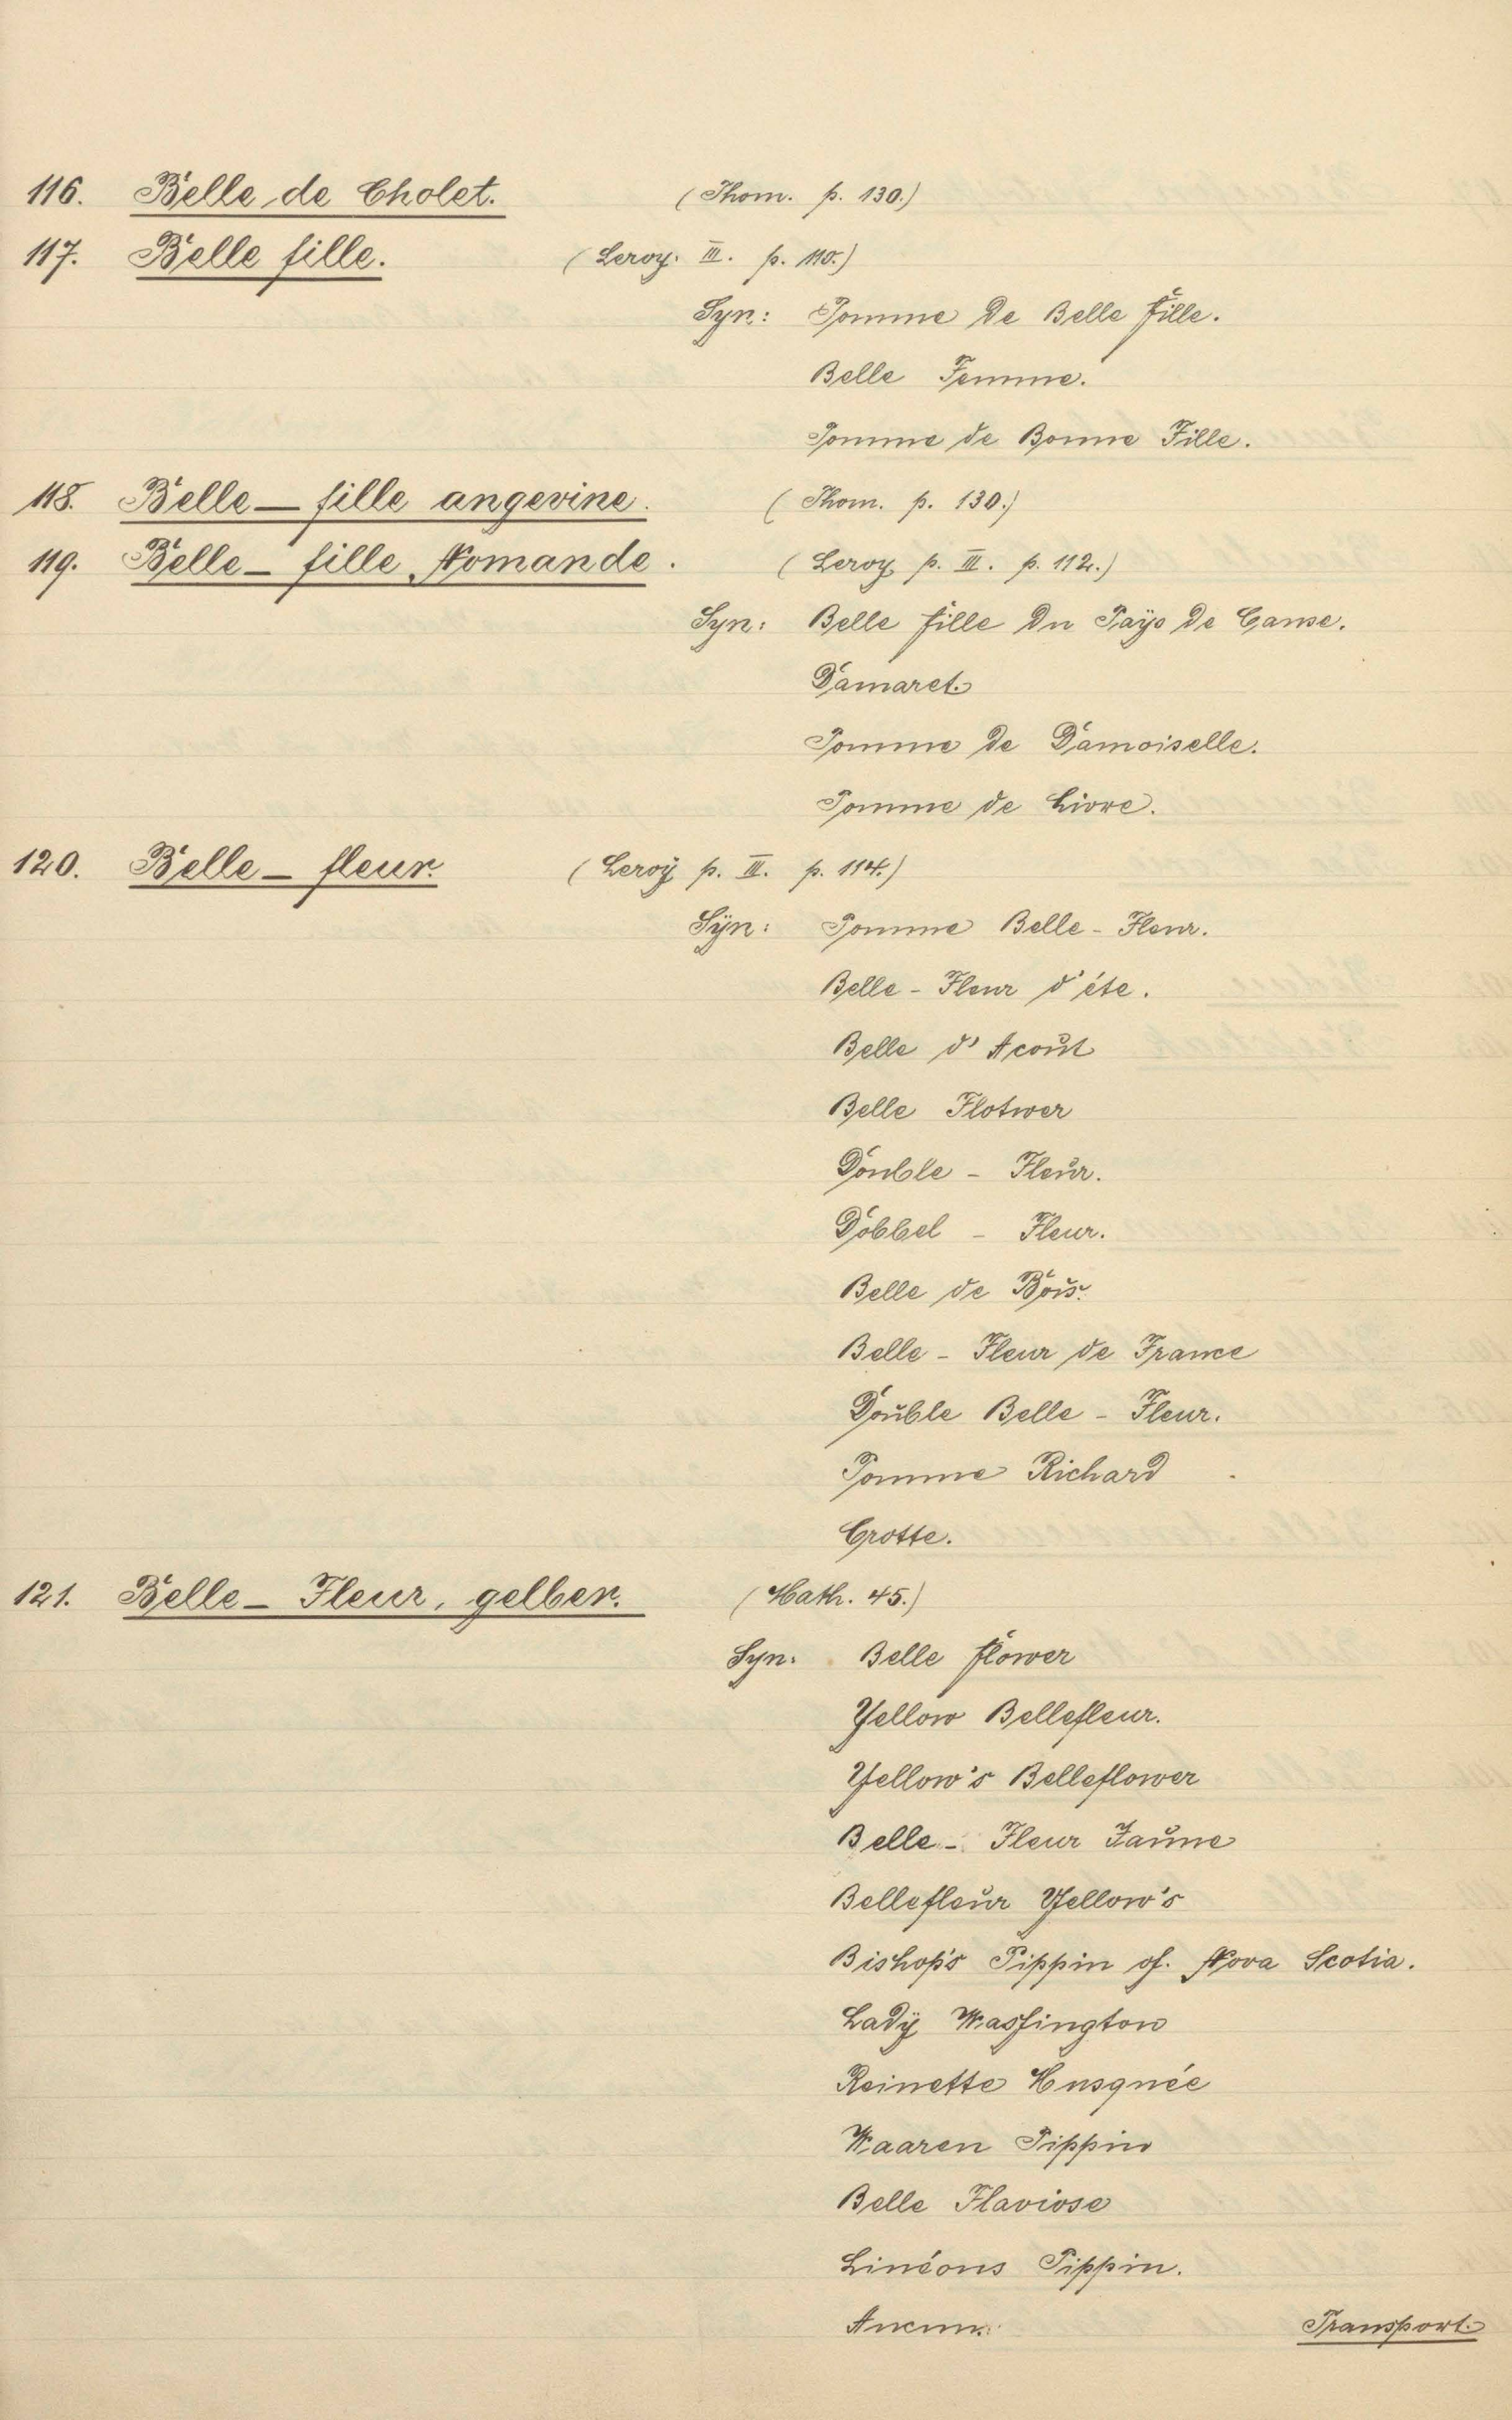 116. Belle de Cholet. (Thom. p. 130.)
117. Belle fille. (Leroy. III. p. 110.)
Syn: Pomme de Belle fille.
Belle Femme.
Pomme de Bonne Fille.
118. Belle-fille angevine. (Thom. p. 130.)
119. Belle-fille Nomande. (Leroy p. III. p. 112.)
Syn: Belle fille du Pays de Canse.
Damaret.
Pomme de Damoiselle.
Pomme de Livre.
120. Belle-fleur. (Leroy p. III. p. 114.)
Syn: Pomme Belle-Fleur.
Belle-Fleur d'éte.
Belle d'Acout
Belle Flotwer
Double-Fleur.
Dobbel-Fleur.
Belle de Bois.
Belle-Fleur de France
Double Belle-Fleur.
Pomme Richard
Crotte.
121. Belle-Fleur, gelber. (Math. 45.)
Syn. Belle flower
Yellow Bellefleur.
Yellow's Belleflower
Belle-Fleur Jaune
Bellefleur Yellow's
Bishop's Pippin of. Nova Scotia.
Lady Wasfington
Reinette Musquée
Waaren Pippin
Belle Flavivse
Linéons Pippin.
Ancun.
Transport.